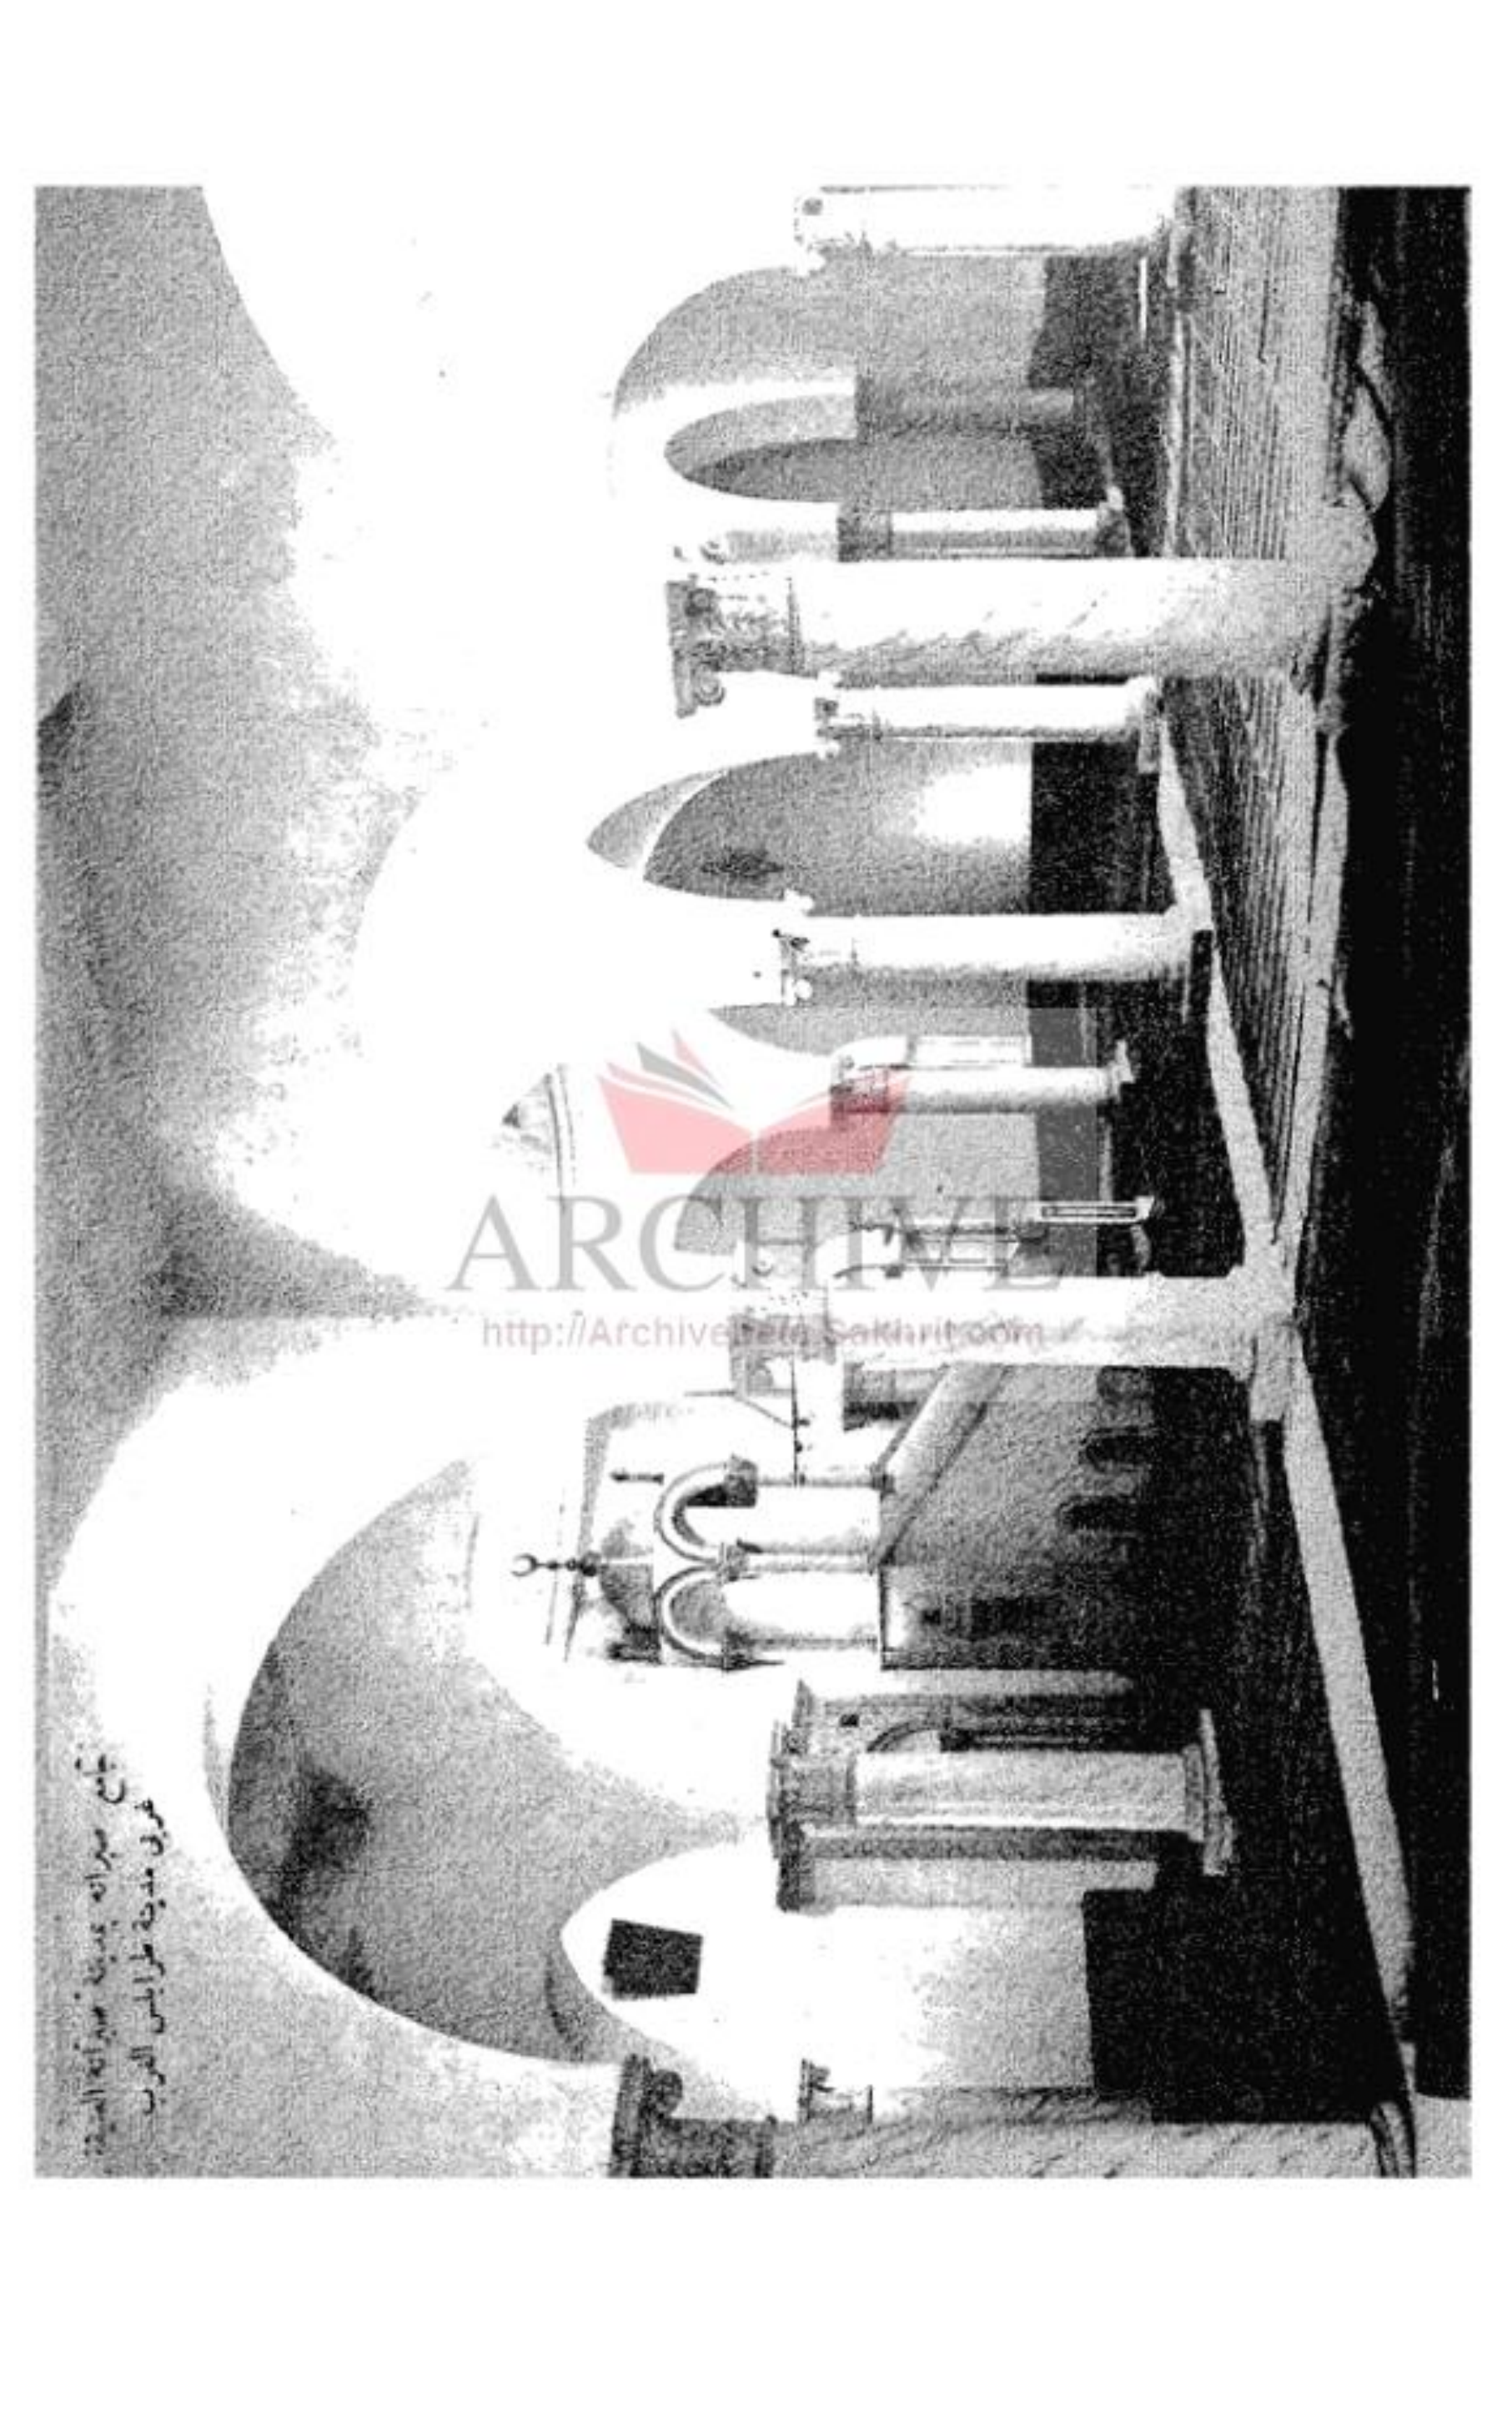 جامع صبراته بمدينة صبراته العتيقة
غربى مدينة طرابلس الغرب
ARCHIVE
http://Archivebeta.Sakhrit.com